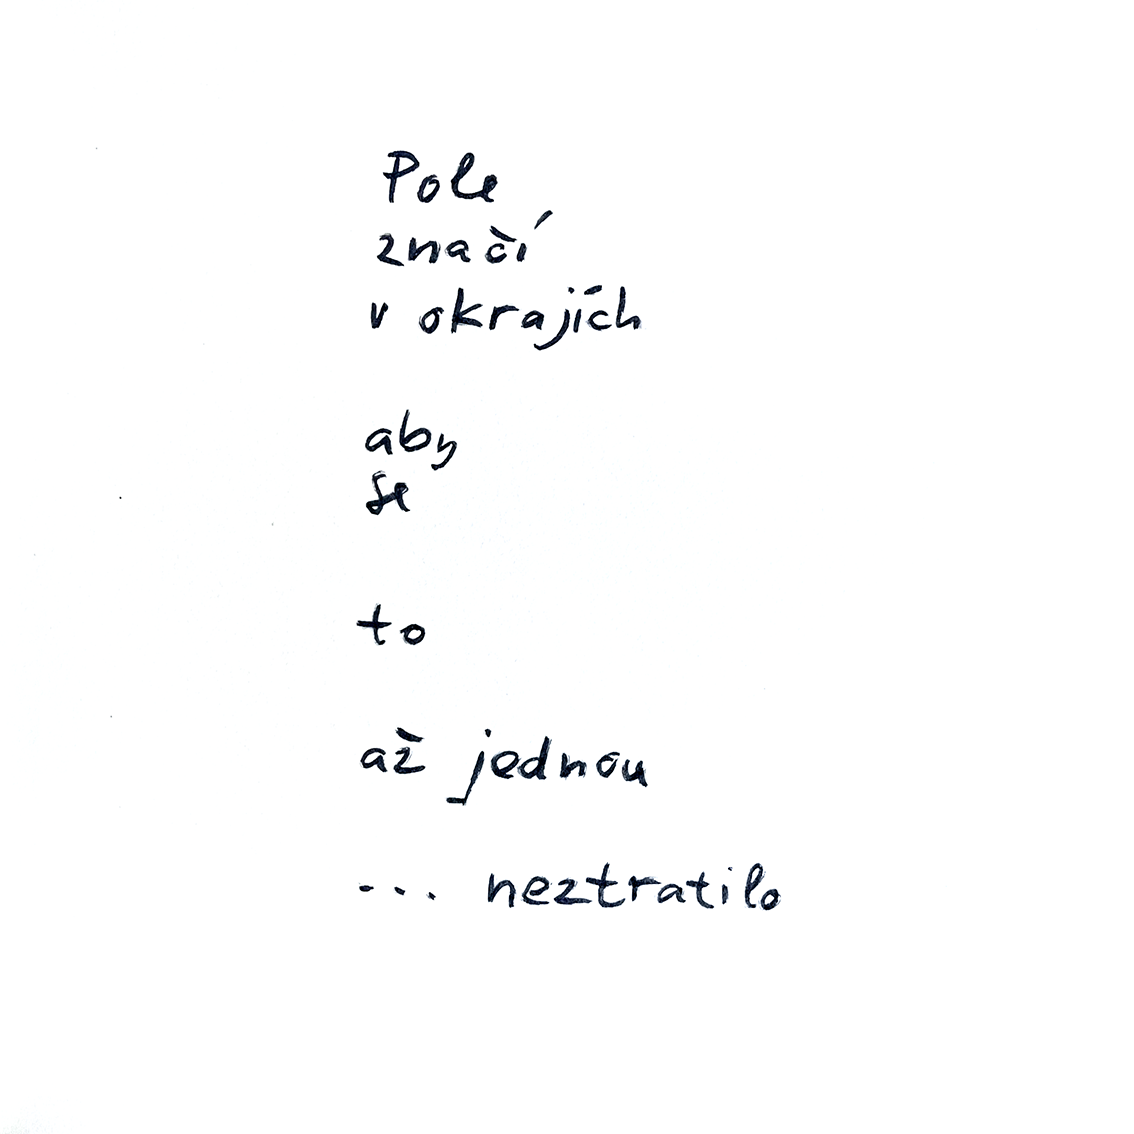 Pole
značí
v okrajích
aby
se
to
až jednou
... neztratilo